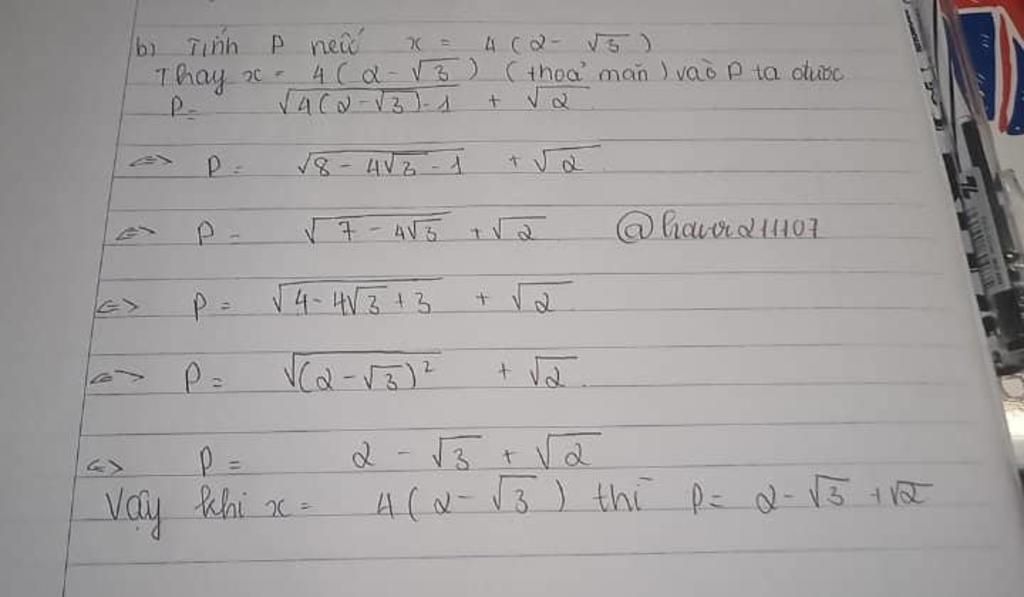 b) Tính P nếu x = 4(2 - √3)
Thay x = 4(2 - √3) (thoả mãn) vào P ta được
P = √(4(2 - √3) - 1) + √2
<=> P = √(8 - 4√3 - 1) + √2
<=> P = √(7 - 4√3) + √2 @havor211107
<=> P = √(4 - 4√3 + 3) + √2
<=> P = √((2 - √3)²) + √2
<=> P = 2 - √3 + √2
Vậy khi x = 4(2 - √3) thì P = 2 - √3 + √2